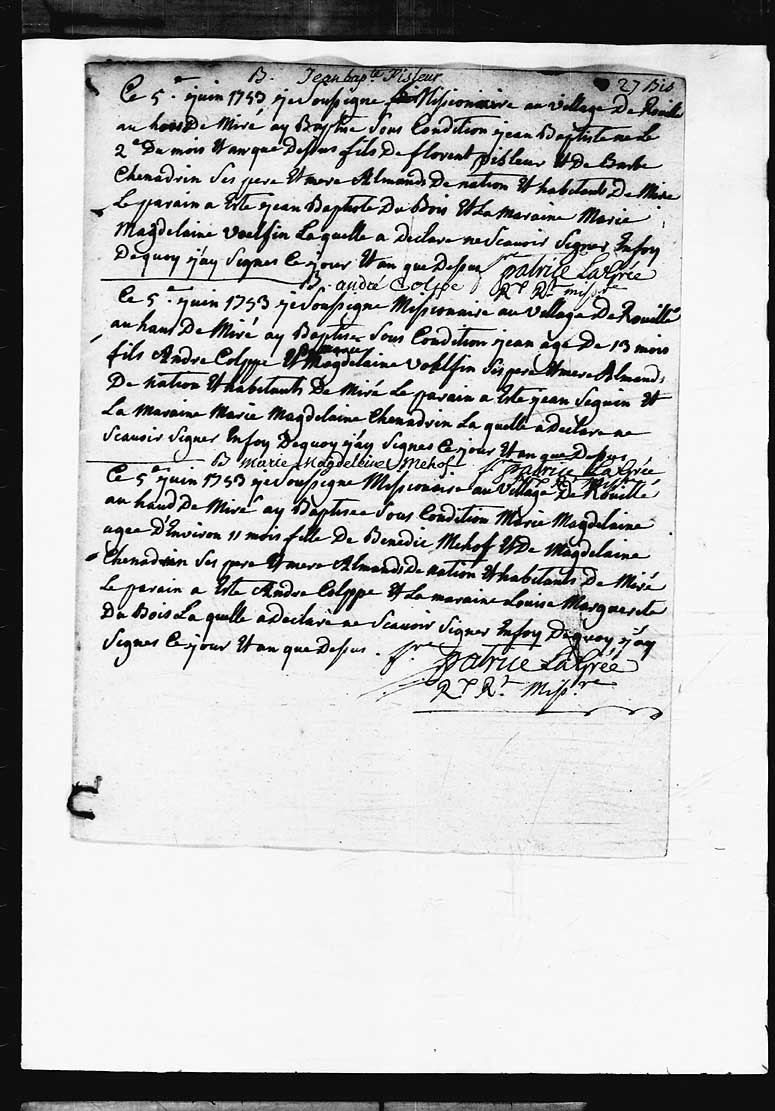 B. Jean bapte. Pisleur
27 Bis
Ce 5.e juin 1753 je Soussigne Missionnaire au village De Rouillé
au haus De Miré ay Baptise Sous Condition jean Baptiste ne Le
2e Du mois et an que Dessus fils De florent pisleur et De Barbe
Chenadrin Ses pere et mere Almands De nation et habitants De Mire
Le parain a Este jean Baptiste Du Bois et La maraine Marie
Magdelaine voelfin La quelle a Declare ne Scavoir Signer Enfoy
Dequoy j'ay Signes Ce jour et an que Dessus fre patrice La Grée
B. andré Colppe
Rt. Rt. missre
Ce 5.e juin 1753 je Soussigne Missionaire au village De Rouillé
au haus De Miré ay Baptise Sous Condition jean age De 13 mois
fils Andre Colppe et Magdelaine vohlfin Ses pere et mere Almands
De nation et habitants De Miré Le parain a Este jean Seguin et
La Maraine Marie Magdelaine Chenadrin La quelle a Declare ne
Scavoir Signer Enfoy Dequoy j'ay Signes Ce jour et an que Dessus
B Marie Magdeleine Mehof
fre patrice La Grée
Ce 5e juin 1753 je Soussigne Missionaire au Village De Rouillé
au haud De Miré ay Baptisee Sous Condition Marie Magdelaine
agee D'Environ 11 mois fille De Benedic Mehof et De Magdelaine
Chenadrin Ses pere et mere Almands De nation et habitants De Miré
Le parain a Este Andre Colppe et La maraine Louise Marguerite
Du Bois La quelle a Declaré ne Scavoir Signer Enfoy Dequoy j'ay
Signes Ce jour et an que Dessus. fre patrice La Grée
Rt Rt Missre